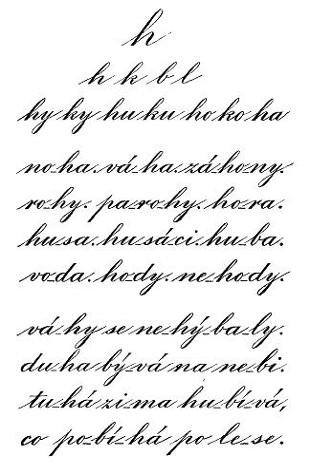 h
h k b l
hy ky hu ku ho ko ha
no-ha. vá-ha. zá-ho-ny.
ro-hy. pa-ro-hy. ho-ra.
hu-sa. hu-sá-ci. hu-ba.
vo-da. ho-dy. ne-ho-dy.
vá-hy se ne-hý-ba-ly.
du-ha bý-vá na ne-bi.
tu-há zi-ma hu-bí-vá,
co po-bí-há po le-se.